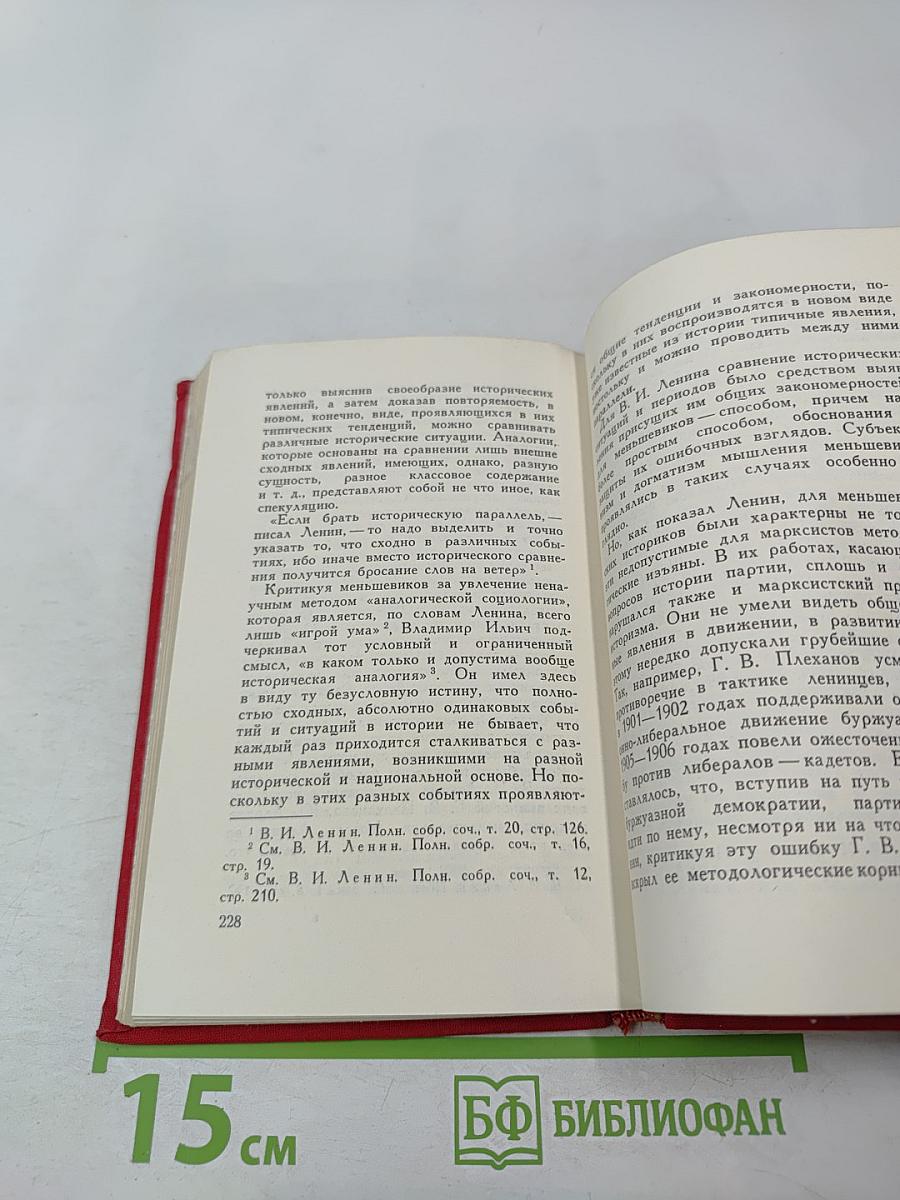 только выяснив своеобразие исторических
явлений, а затем доказав повторяемость, в
новом, конечно, виде, проявляющихся в них
типических тенденций, можно сравнивать
различные исторические ситуации. Аналогии,
которые основаны на сравнении лишь внешне
сходных явлений, имеющих, однако, разную
сущность, разное классовое содержание
и т. д., представляют собой не что иное, как
спекуляцию.
«Если брать историческую параллель,—
писал Ленин,— то надо выделить и точно
указать то, что сходно в различных собы-
тиях, ибо иначе вместо исторического сравне-
ния получится бросание слов на ветер» 1.
Критикуя меньшевиков за увлечение нена-
учным методом «аналогической социологии»,
которая является, по словам Ленина, всего
лишь «игрой ума» 2, Владимир Ильич под-
черкивал тот условный и ограниченный
смысл, «в каком только и допустима вообще
историческая аналогия» 3. Он имел здесь
в виду ту безусловную истину, что полно-
стью сходных, абсолютно одинаковых собы-
тий и ситуаций в истории не бывает, что
каждый раз приходится сталкиваться с раз-
ными явлениями, возникшими на разной
исторической и национальной основе. Но по-
скольку в этих разных событиях проявляют-
1 В. И. Ленин. Полн. собр. соч., т. 20, стр. 126.
2 См. В. И. Ленин. Полн. собр. соч., т. 16,
стр. 19.
3 См. В. И. Ленин. Полн. собр. соч., т. 12,
стр. 210.
228
общие тенденции и закономерности, по-
в них воспроизводятся в новом виде
известные из истории типичные явления,
и можно проводить между ними
параллели.
Для В. И. Ленина сравнение исторических
ситуаций и периодов было средством
присущих им общих закономерностей
меньшевиков — способом, причем
более простым способом, обоснования
защиты их ошибочных взглядов.
и догматизм мышления
проявлялись в таких случаях особенно
Но, как показал Ленин, для
историков были характерны не
недопустимые для марксистов
изъяны. В их работах,
вопросов истории партии, сплошь и
нарушался также и марксистский
историзма. Они не умели видеть
явления в движении, в развитии
нередко допускали грубейшие
Так, например, Г. В. Плеханов
противоречие в тактике ленинцев,
в 1901—1902 годах поддерживали
движение
1905—1906 годах повели
против либералов — кадетов.
что, вступив на путь
буржуазной демократии,
идти по нему, несмотря ни на
критикуя эту ошибку Г. В.
ее методологические
15 см
БФ БИБЛИОФАН